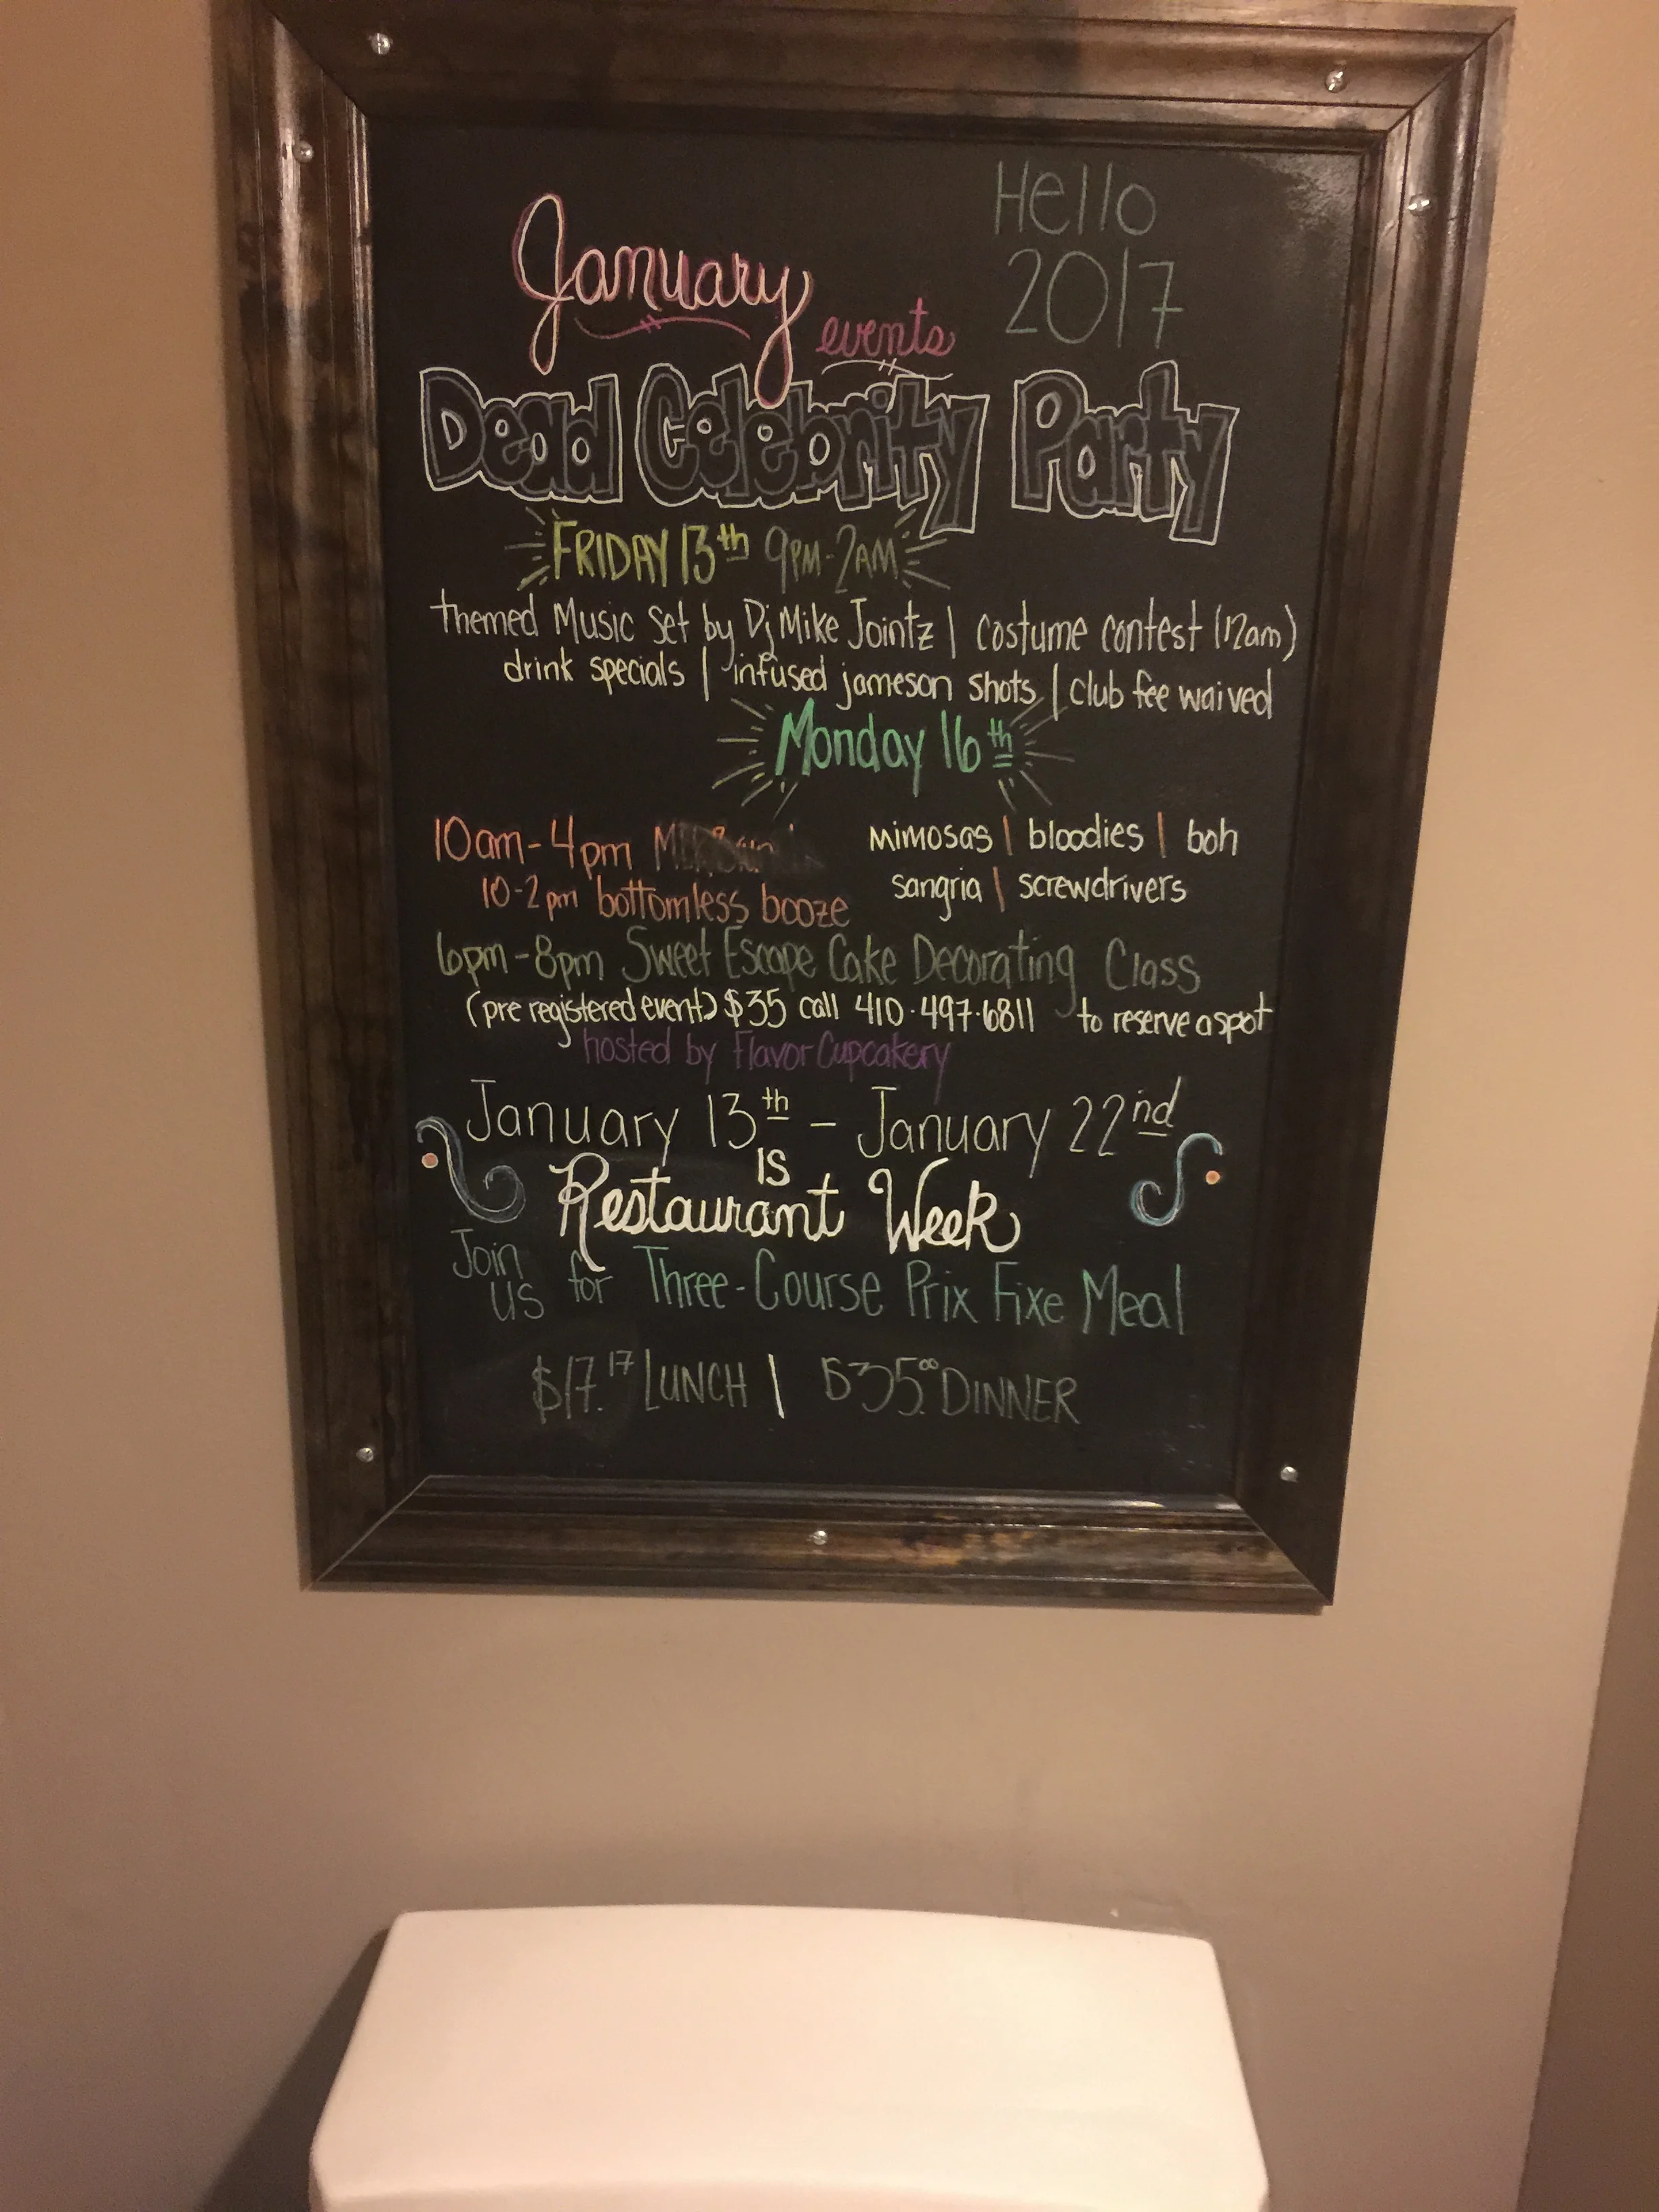 Hello
2017
January
events
Dead Celebrity Party
FRIDAY 13th 9PM-2AM
themed Music Set by Dj Mike Jointz | costume contest (12am)
drink specials | infused jameson shots | club fee waived
Monday 16th
10am-4pm
mimosas | bloodies | boh
10-2pm bottomless booze
sangria | screwdrivers
6pm-8pm Sweet Escape Cake Decorating Class
(pre registered event) $35 call 410·497·6811 to reserve a spot
hosted by Flavor Cupcakery
January 13th - January 22nd
IS
Restaurant Week
Join us for Three-Course Prix Fixe Meal
$17.17 LUNCH | $35.00 DINNER